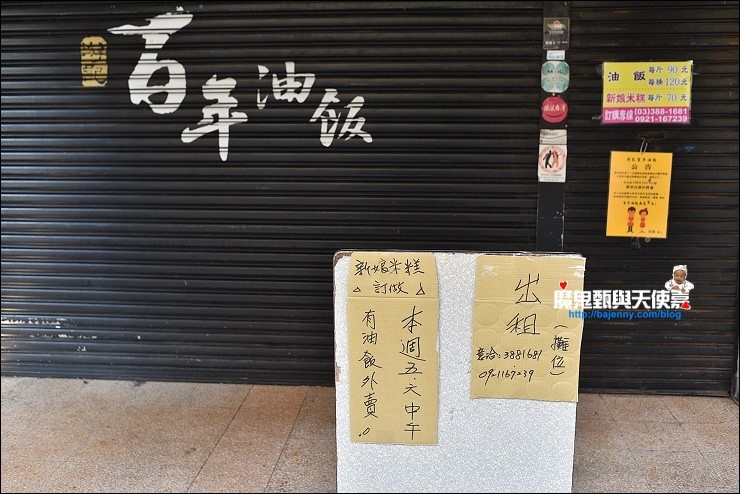 百年油飯
油飯 每斤 90 元
每桶 120元
新娘米糕 每斤 70 元
訂購專線 (03)388-1681
0921-167239
公告
新娘米糕
訂做
本週五、六中午
有油飯外賣。
出租
(攤位)
意洽:3881681
0921167239
魔鬼甄與天使嘉
http://bajenny.com/blog